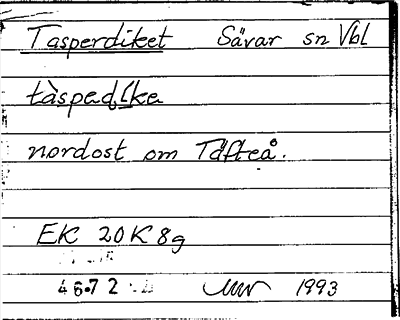 Tasperdiket Sävar sn Vbl
nordost om Täfteå.
EK 20 K 8g
4672
1993